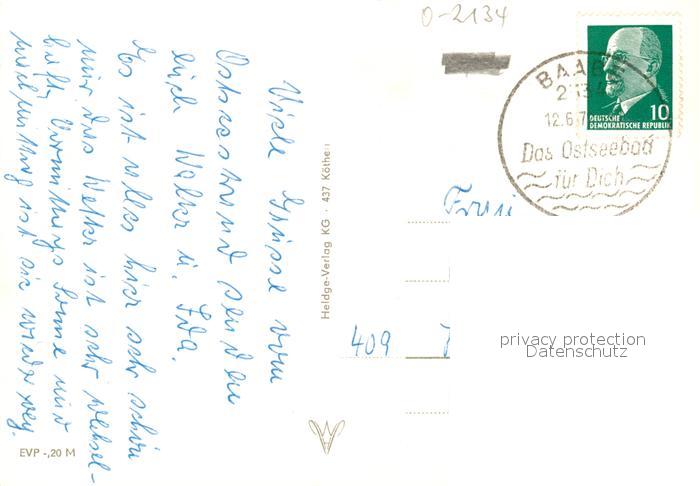 O-2134
BAABE
2134
12.6.7
Das Ostseebad
für Dich
10
DEUTSCHE
DEMOKRATISCHE REPUBLIK
Viele Grüsse vom
Ostseestrand senden
Euch Walter u. Ida.
Es ist alles hier sehr schön
nur das Wetter ist sehr wechsel-
haft, Vormittags Sonne und
nachmittag ist sie wieder weg.
EVP -,20 M
Heldge-Verlag KG · 437 Köthen
Frau
409
privacy protection
Datenschutz